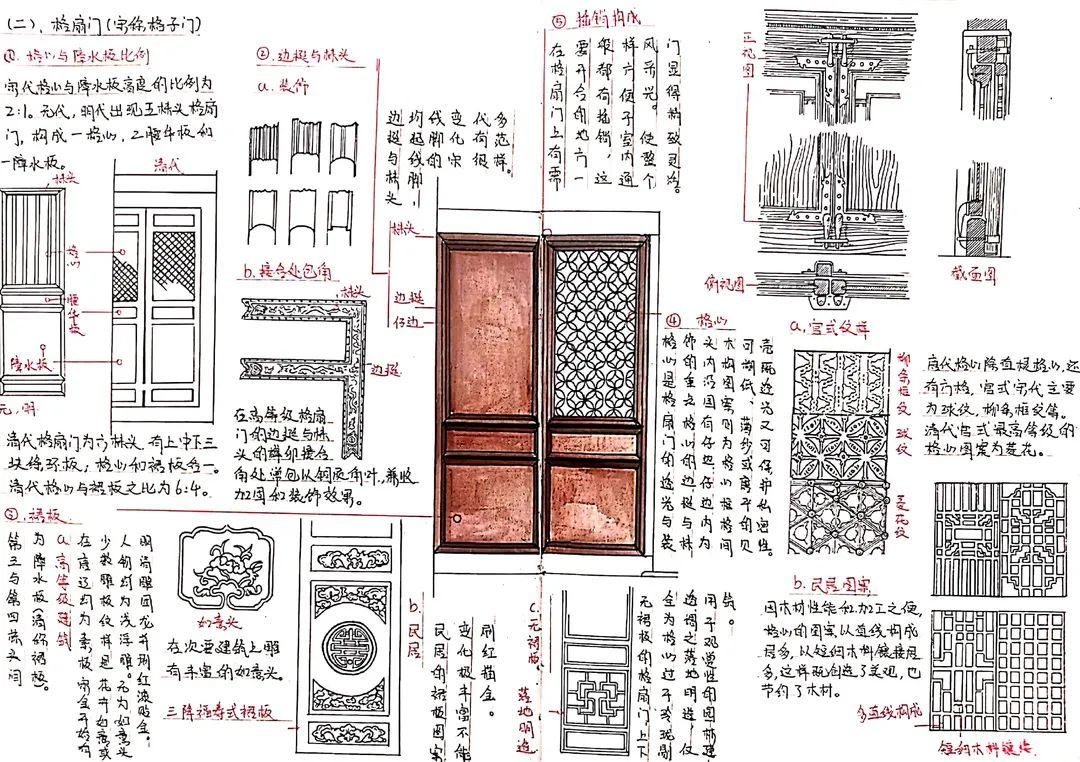 (二)、格扇门(宋称格子门)
①、格心与障水板比例
宋代格心与障水板高度的比例为
2:1。元代，明代出现五抹头格扇
门，构成一格心，二腰华板和
一障水板。
清代
抹头
格心
腰华板
障水板
元，明
清代格扇门为六抹头，有上中下三
块绦环板，格心和裙板各一。
清代格心与裙板之比为6:4。
②、边挺与抹头
a.装饰
边挺与抹头
均起线脚，
线脚的
变化宋
代有很
多范样。
b.接合处包角
抹头
边挺
在高等级格扇
门的边挺与抹
头的榫卯接合
角处常包以铜质角叶，兼收
加固和装饰效果。
抹头
边挺
仔边
③、裙板
第三与第四抹头间
为障水板(清称裙板)。
a.高等级建筑
在唐辽均为素板，宋金开始有
少数雕纹样是花卉如意或
人物均为浅浮雕。元为如意头
明清雕团龙并刷红滚贴金。
如意头
在次要建筑上雕
有丰富的如意头。
三障福寿式裙板
b.民居
民居的裙板图案
变化极丰富不能
刷红描金。
c.无裙板、落地明造
无裙板的格扇门上下
全为格心过于玲珑剔
透谓之落地明造，仅
用于观赏性的园林建
筑。
④格心
格心是格扇门的透光与装
饰的重点格心的边挺与抹
头内沿因有仔边，仔边内为
木构图案则为格心柱格间
可糊纸、薄纱或离子的贝
壳既透光又可保护私密性。
⑤插销构成
在格扇门上有需
要开合的地六一
般都有插销，这
样六便子室内通
风采光。使整个
门显得精致灵活。
正视图
俯视图
截面图
a.宫式纹样
柳条框纹
球纹
菱花纹
唐代格心除直棂格心，还
有方格，宫式宋代主要
为球纹，柳条框纹等。
清代宫式最高等级的
格心图案为菱花。
b.民居图案
因木材性能和加工之便，
格心的图案以直线构成
居多，以短木料镶接居
多，这样既创造了美观，也
节约了木材。
多直线构成
短的木料镶接